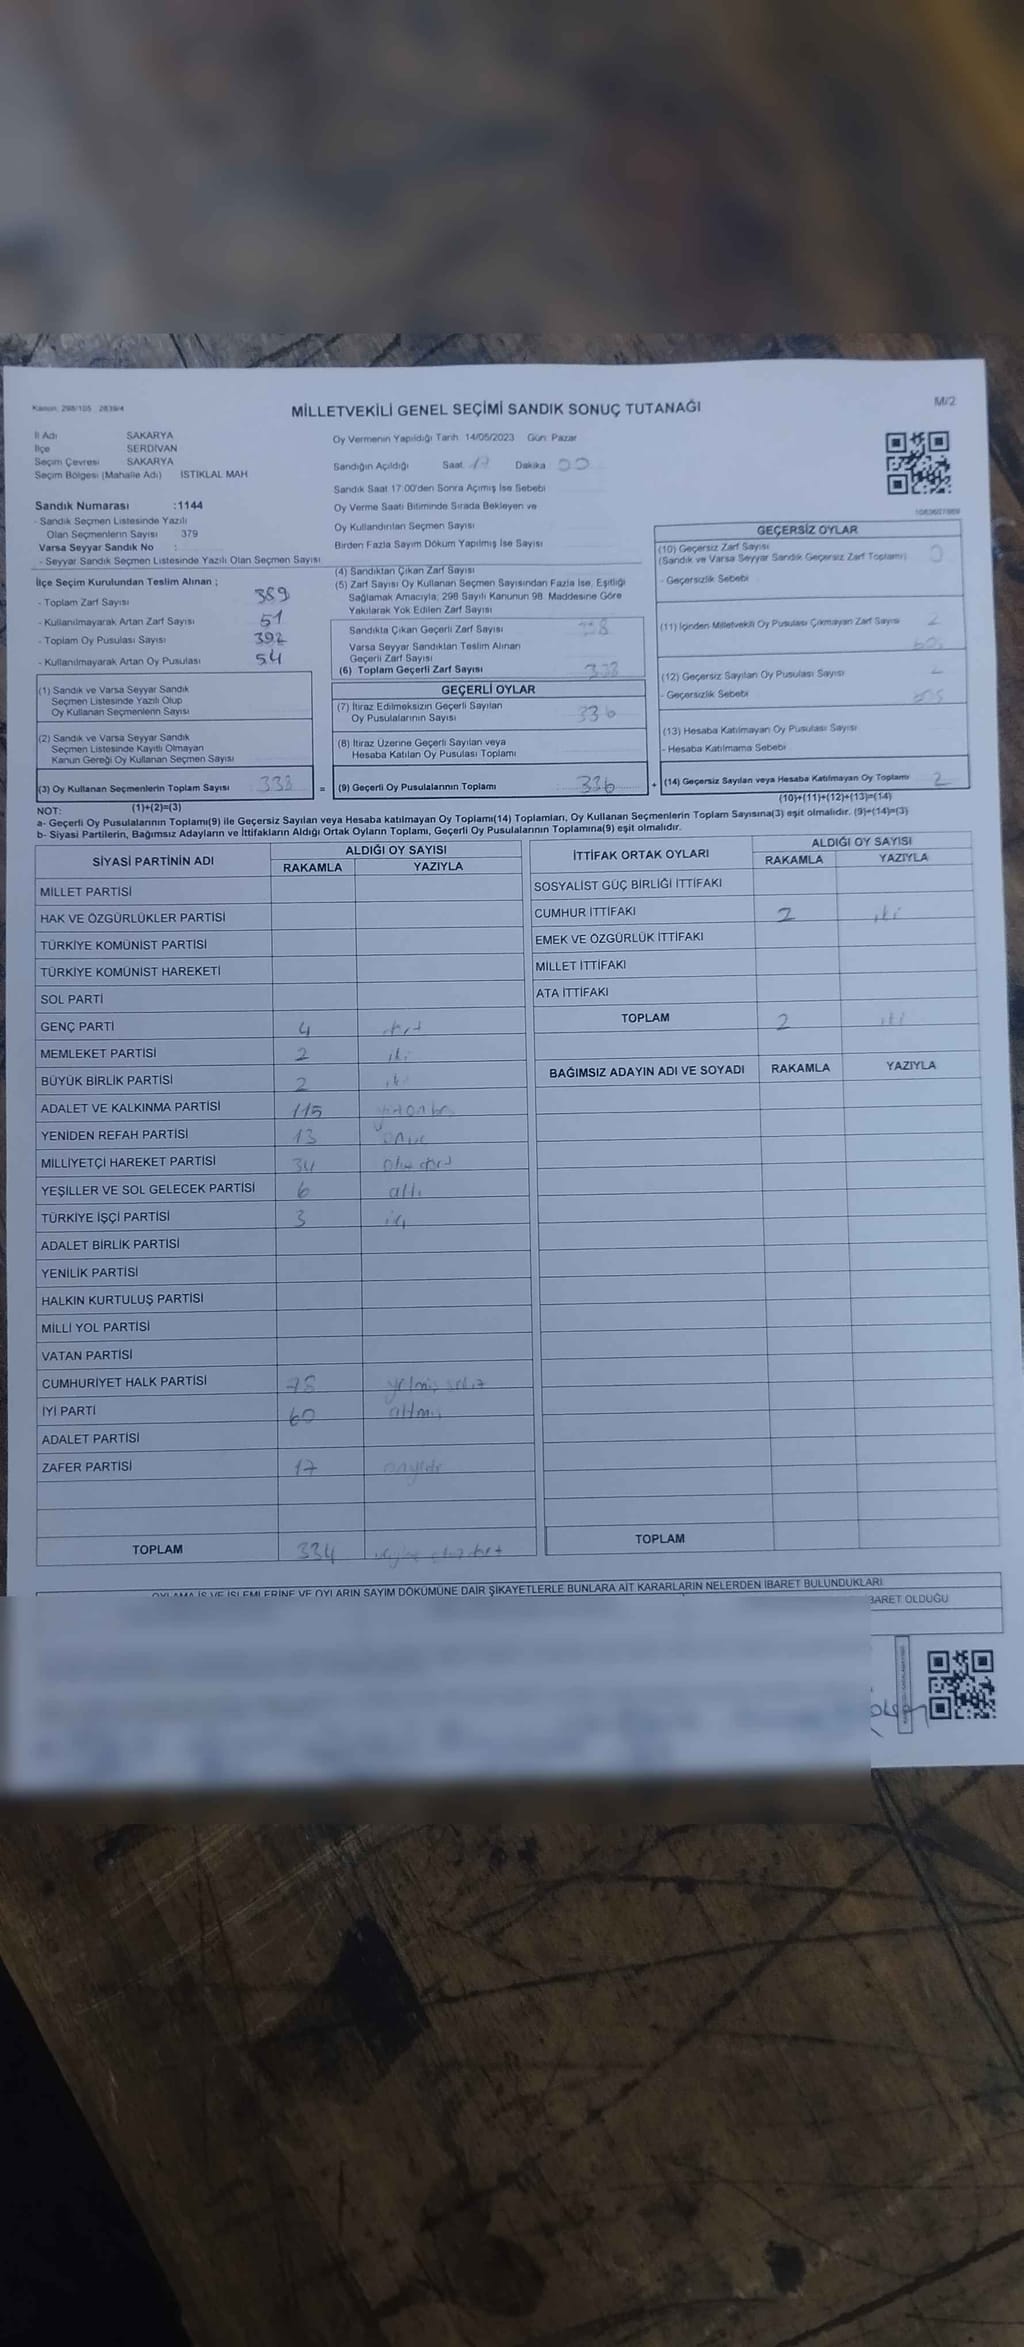 Kanun: 298/105 , 2839/4
MİLLETVEKİLİ GENEL SEÇİMİ SANDIK SONUÇ TUTANAĞI
M/2
İl Adı SAKARYA
İlçe SERDİVAN
Seçim Çevresi SAKARYA
Seçim Bölgesi (Mahalle Adı) İSTİKLAL MAH
Oy Vermenin Yapıldığı Tarih: 14/05/2023 Gün: Pazar
Sandığın Açıldığı Saat 17 Dakika 00
Sandık Saat 17:00'den Sonra Açımış İse Sebebi
Oy Verme Saati Bitiminde Sırada Bekleyen ve
Oy Kullandırılan Seçmen Sayısı
Birden Fazla Sayım Döküm Yapılmış İse Sayısı
Sandık Numarası :1144
- Sandık Seçmen Listesinde Yazılı
Olan Seçmenlerin Sayısı 379
Varsa Seyyar Sandık No :
- Seyyar Sandık Seçmen Listesinde Yazılı Olan Seçmen Sayısı
İlçe Seçim Kurulundan Teslim Alınan ;
- Toplam Zarf Sayısı 389
- Kullanılmayarak Artan Zarf Sayısı 51
- Toplam Oy Pusulası Sayısı 392
- Kullanılmayarak Artan Oy Pusulası 54
(1) Sandık ve Varsa Seyyar Sandık
Seçmen Listesinde Yazılı Olup
Oy Kullanan Seçmenlerin Sayısı
(2) Sandık ve Varsa Seyyar Sandık
Seçmen Listesinde Kayıtlı Olmayan
Kanun Gereği Oy Kullanan Seçmen Sayısı
(3) Oy Kullanan Seçmenlerin Toplam Sayısı 338 =
(4) Sandıktan Çıkan Zarf Sayısı
(5) Zarf Sayısı Oy Kullanan Seçmen Sayısından Fazla İse, Eşitliği
Sağlamak Amacıyla; 298 Sayılı Kanunun 98. Maddesine Göre
Yakılarak Yok Edilen Zarf Sayısı
Sandıkta Çıkan Geçerli Zarf Sayısı 338
Varsa Seyyar Sandıktan Teslim Alınan
Geçerli Zarf Sayısı
(6) Toplam Geçerli Zarf Sayısı 338
GEÇERLİ OYLAR
(7) İtiraz Edilmeksizin Geçerli Sayılan
Oy Pusulalarının Sayısı 336
(8) İtiraz Üzerine Geçerli Sayılan veya
Hesaba Katılan Oy Pusulası Toplamı
(9) Geçerli Oy Pusulalarının Toplamı 336 +
GEÇERSİZ OYLAR
(10) Geçersiz Zarf Sayısı
(Sandık ve Varsa Seyyar Sandık Geçersiz Zarf Toplamı) 0
- Geçersizlik Sebebi
(11) İçinden Milletvekili Oy Pusulası Çıkmayan Zarf Sayısı 2
boş
(12) Geçersiz Sayılan Oy Pusulası Sayısı
- Geçersizlik Sebebi
(13) Hesaba Katılmayan Oy Pusulası Sayısı
- Hesaba Katılmama Sebebi
(14) Geçersiz Sayılan veya Hesaba Katılmayan Oy Toplamı 2
(10)+(11)+(12)+(13)=(14)
NOT: (1)+(2)=(3)
a- Geçerli Oy Pusulalarının Toplamı(9) ile Geçersiz Sayılan veya Hesaba katılmayan Oy Toplamı(14) Toplamları, Oy Kullanan Seçmenlerin Toplam Sayısına(3) eşit olmalıdır. (9)+(14)=(3)
b- Siyasi Partilerin, Bağımsız Adayların ve İttifakların Aldığı Ortak Oyların Toplamı, Geçerli Oy Pusulalarının Toplamına(9) eşit olmalıdır.
SİYASİ PARTİNİN ADI ALDIĞI OY SAYISI
RAKAMLA YAZIYLA
MİLLET PARTİSİ
HAK VE ÖZGÜRLÜKLER PARTİSİ
TÜRKİYE KOMÜNİST PARTİSİ
TÜRKİYE KOMÜNİST HAREKETİ
SOL PARTİ
GENÇ PARTİ 4 dört
MEMLEKET PARTİSİ 2 iki
BÜYÜK BİRLİK PARTİSİ 2 iki
ADALET VE KALKINMA PARTİSİ 115
YENİDEN REFAH PARTİSİ 13 onüç
MİLLİYETÇİ HAREKET PARTİSİ 34 otuzdört
YEŞİLLER VE SOL GELECEK PARTİSİ 6 altı
TÜRKİYE İŞÇİ PARTİSİ 3 üç
ADALET BİRLİK PARTİSİ
YENİLİK PARTİSİ
HALKIN KURTULUŞ PARTİSİ
MİLLİ YOL PARTİSİ
VATAN PARTİSİ
CUMHURİYET HALK PARTİSİ 78 yetmiş sekiz
İYİ PARTİ 60 altmış
ADALET PARTİSİ
ZAFER PARTİSİ 17 onyedi
TOPLAM 334
İTTİFAK ORTAK OYLARI ALDIĞI OY SAYISI
RAKAMLA YAZIYLA
SOSYALİST GÜÇ BİRLİĞİ İTTİFAKI
CUMHUR İTTİFAKI 2 iki
EMEK VE ÖZGÜRLÜK İTTİFAKI
MİLLET İTTİFAKI
ATA İTTİFAKI
TOPLAM 2 iki
BAĞIMSIZ ADAYIN ADI VE SOYADI RAKAMLA YAZIYLA
TOPLAM
OYLAMA İŞ VE İŞLEMLERİNE VE OYLARIN SAYIM DÖKÜMÜNE DAİR ŞİKAYETLERLE BUNLARA AİT KARARLARIN NELERDEN İBARET BULUNDUKLARI
BARET OLDUĞU